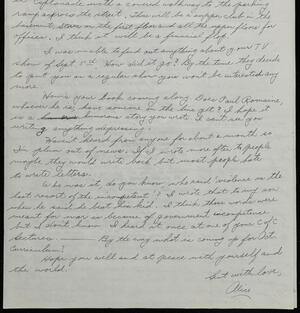 explainable with a covered walkway to the parking
ramp across the street. There will be a supper club in the
basement, stores on the first floor and all the upper floors for
offices. I think it will be a financial flop.
I was unable to find out anything about your TV
show of Sept 8th. How did it go? By the time they decide
to put you on a regular show you won't be interested any
more.
How's your book coming along? Does Paul Romaine,
whoever he is, have someone in the line yet? I hope it
is a humorous story you wrote. I can't see you
writing anything depressing.
Haven't heard from anyone for about a month so
I'm plain out of news. If I wrote more often to people
maybe they would write back but most people hate
to write letters.
Who was it, do you know, who said "violence is the
last resort of the incompetent"? I wrote that to my son
when he said he beat his kid. I think those words were
meant for war is because of government incompetence
but I don't know. I heard it once at one of your C of C
lectures. By the way what is coming up for Oct
Curriculum?
Hope you well and at peace with yourself and
the world.
But with love,
Alice